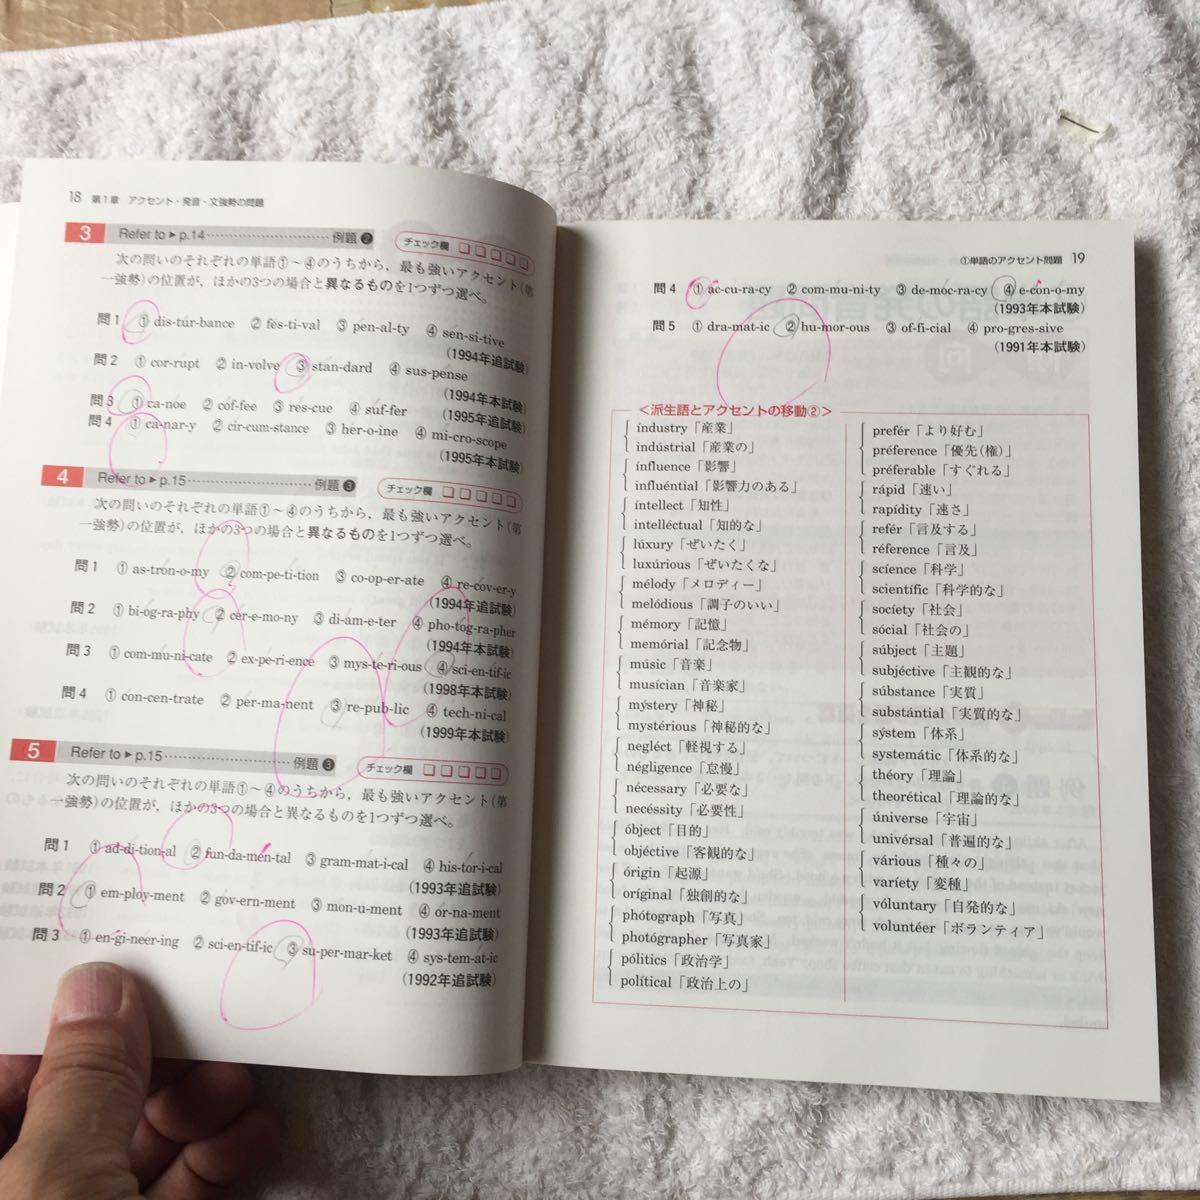 18 第1章 アクセント・発音・文強勢の問題
3 Refer to ▶ p.14 …………………… 例題❷ チェック欄 □□□□□
次の問いのそれぞれの単語①～④のうちから，最も強いアクセント(第
一強勢)の位置が，ほかの3つの場合と異なるものを1つずつ選べ。
問1 ① dis-tur-bance ② fes-ti-val ③ pen-al-ty ④ sen-si-tive
(1994年追試験)
問2 ① cor-rupt ② in-volve ③ stan-dard ④ sus-pense
(1994年本試験)
問3 ① ca-noe ② cof-fee ③ res-cue ④ suf-fer
(1995年追試験)
問4 ① ca-nar-y ② cir-cum-stance ③ her-o-ine ④ mi-cro-scope
(1995年本試験)
4 Refer to ▶ p.15 …………………… 例題❸ チェック欄 □□□□□
次の問いのそれぞれの単語①～④のうちから，最も強いアクセント(第
一強勢)の位置が，ほかの3つの場合と異なるものを1つずつ選べ。
問1 ① as-tron-o-my ② com-pe-ti-tion ③ co-op-er-ate ④ re-cov-er-y
(1994年追試験)
問2 ① bi-og-ra-phy ② cer-e-mo-ny ③ di-am-e-ter ④ pho-tog-ra-pher
(1994年本試験)
問3 ① com-mu-ni-cate ② ex-pe-ri-ence ③ mys-te-ri-ous ④ sci-en-tif-ic
(1998年本試験)
問4 ① con-cen-trate ② per-ma-nent ③ re-pub-lic ④ tech-ni-cal
(1999年本試験)
5 Refer to ▶ p.15 …………………… 例題❸ チェック欄 □□□□□
次の問いのそれぞれの単語①～④のうちから，最も強いアクセント(第
一強勢)の位置が，ほかの3つの場合と異なるものを1つずつ選べ。
問1 ① ad-di-tion-al ② fun-da-men-tal ③ gram-mat-i-cal ④ his-tor-i-cal
(1993年追試験)
問2 ① em-ploy-ment ② gov-ern-ment ③ mon-u-ment ④ or-na-ment
(1993年追試験)
問3 ① en-gi-neer-ing ② sci-en-tif-ic ③ su-per-mar-ket ④ sys-tem-at-ic
(1992年追試験)
①単語のアクセント問題 19
問4 ① ac-cu-ra-cy ② com-mu-ni-ty ③ de-moc-ra-cy ④ e-con-o-my
(1993年本試験)
問5 ① dra-mat-ic ② hu-mor-ous ③ of-fi-cial ④ pro-gres-sive
(1991年本試験)
＜派生語とアクセントの移動②＞
índustry「産業」
indústrial「産業の」
ínfluence「影響」
influéntial「影響力のある」
íntellect「知性」
intelléctual「知的な」
lúxury「ぜいたく」
luxúrious「ぜいたくな」
mélody「メロディー」
melódious「調子のいい」
mémory「記憶」
memórial「記念物」
músic「音楽」
musícian「音楽家」
mýstery「神秘」
mystérious「神秘的な」
negléct「軽視する」
négligence「怠慢」
nécessary「必要な」
necéssity「必要性」
óbject「目的」
objéctive「客観的な」
órigin「起源」
oríginal「独創的な」
phótograph「写真」
photógrapher「写真家」
pólitics「政治学」
polítical「政治上の」
prefér「より好む」
préference「優先(権)」
préferable「すぐれる」
rápid「速い」
rapídity「速さ」
refér「言及する」
réference「言及」
scíence「科学」
scientífic「科学的な」
socíety「社会」
sócial「社会の」
súbject「主題」
subjéctive「主観的な」
súbstance「実質」
substántial「実質的な」
sýstem「体系」
systemátic「体系的な」
théory「理論」
theorétical「理論的な」
úniverse「宇宙」
univérsal「普遍的な」
várious「種々の」
varíety「変種」
vóluntary「自発的な」
voluntéer「ボランティア」